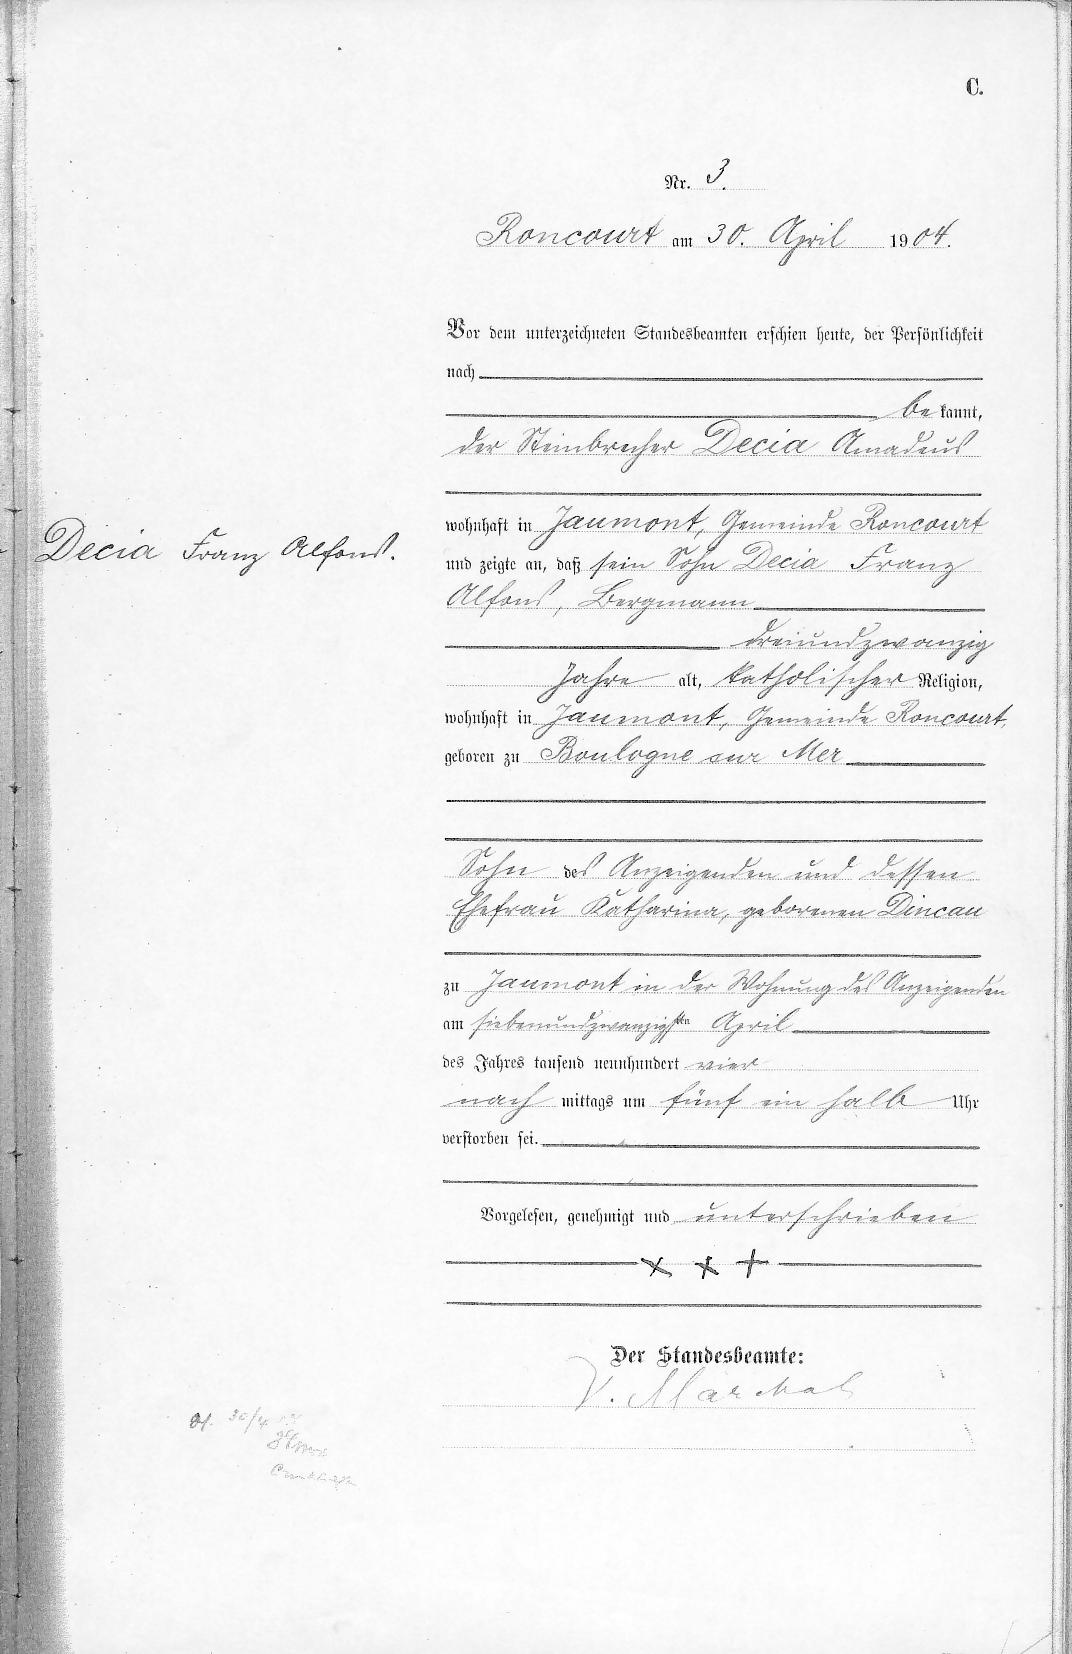 C.
Nr. 3.
Roncourt am 30. April 1904.
Vor dem unterzeichneten Standesbeamten erschien heute, der Persönlichkeit
nach
be kannt,
der Steinbrecher Decia Amadeus
wohnhaft in Jaumont, Gemeinde Roncourt
Decia Franz Alfons.
und zeigte an, daß sein Sohn Decia Franz
Alfons, Bergmann
dreiundzwanzig
Jahre alt, katholischer Religion,
wohnhaft in Jaumont, Gemeinde Roncourt,
geboren zu Boulogne sur Mer
Sohn des Anzeigenden und dessen
Ehefrau Katharina, geborenen Dincau
zu Jaumont in der Wohnung des Anzeigenden
am siebenundzwanzigsten April
des Jahres tausend neunhundert vier
nach mittags um fünf ein halb Uhr
verstorben sei.
Vorgelesen, genehmigt und unterschrieben
x x +
Der Standesbeamte:
V. Marchal
30/4